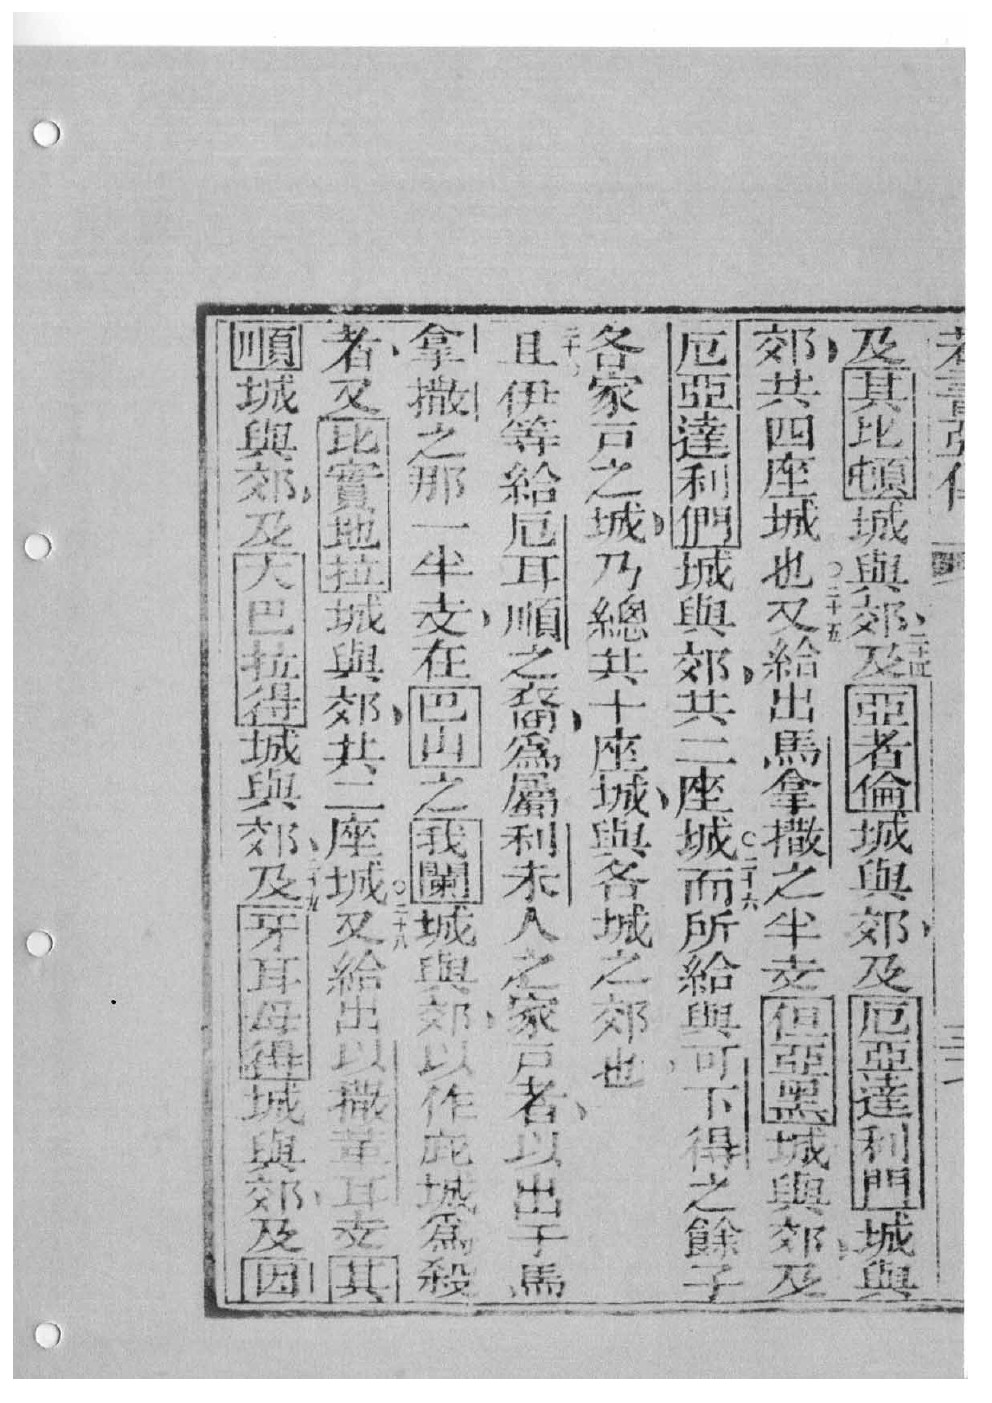 及其比頓城與郊、二十四及亞者倫城與郊、及厄亞達利門城與
郊、共四座城也○二十五又給出馬拿撒之半支但亞黑城與郊、及
厄亞達利們城與郊、共二座城○二十六而所給與可下得之餘子
各家戶之城、乃總共十座城、與各城之郊也、
二十七且伊等給厄耳順之裔、爲屬利未人之家戶者、以出于馬
拿撒之那一半支、在巴山之我闌城與郊、以作庇城爲殺
者、又比實地拉城與郊、共二座城○二十八又給出以撒革耳支其
順城與郊、及大巴拉得城與郊、二十九及牙耳母得城與郊、及因